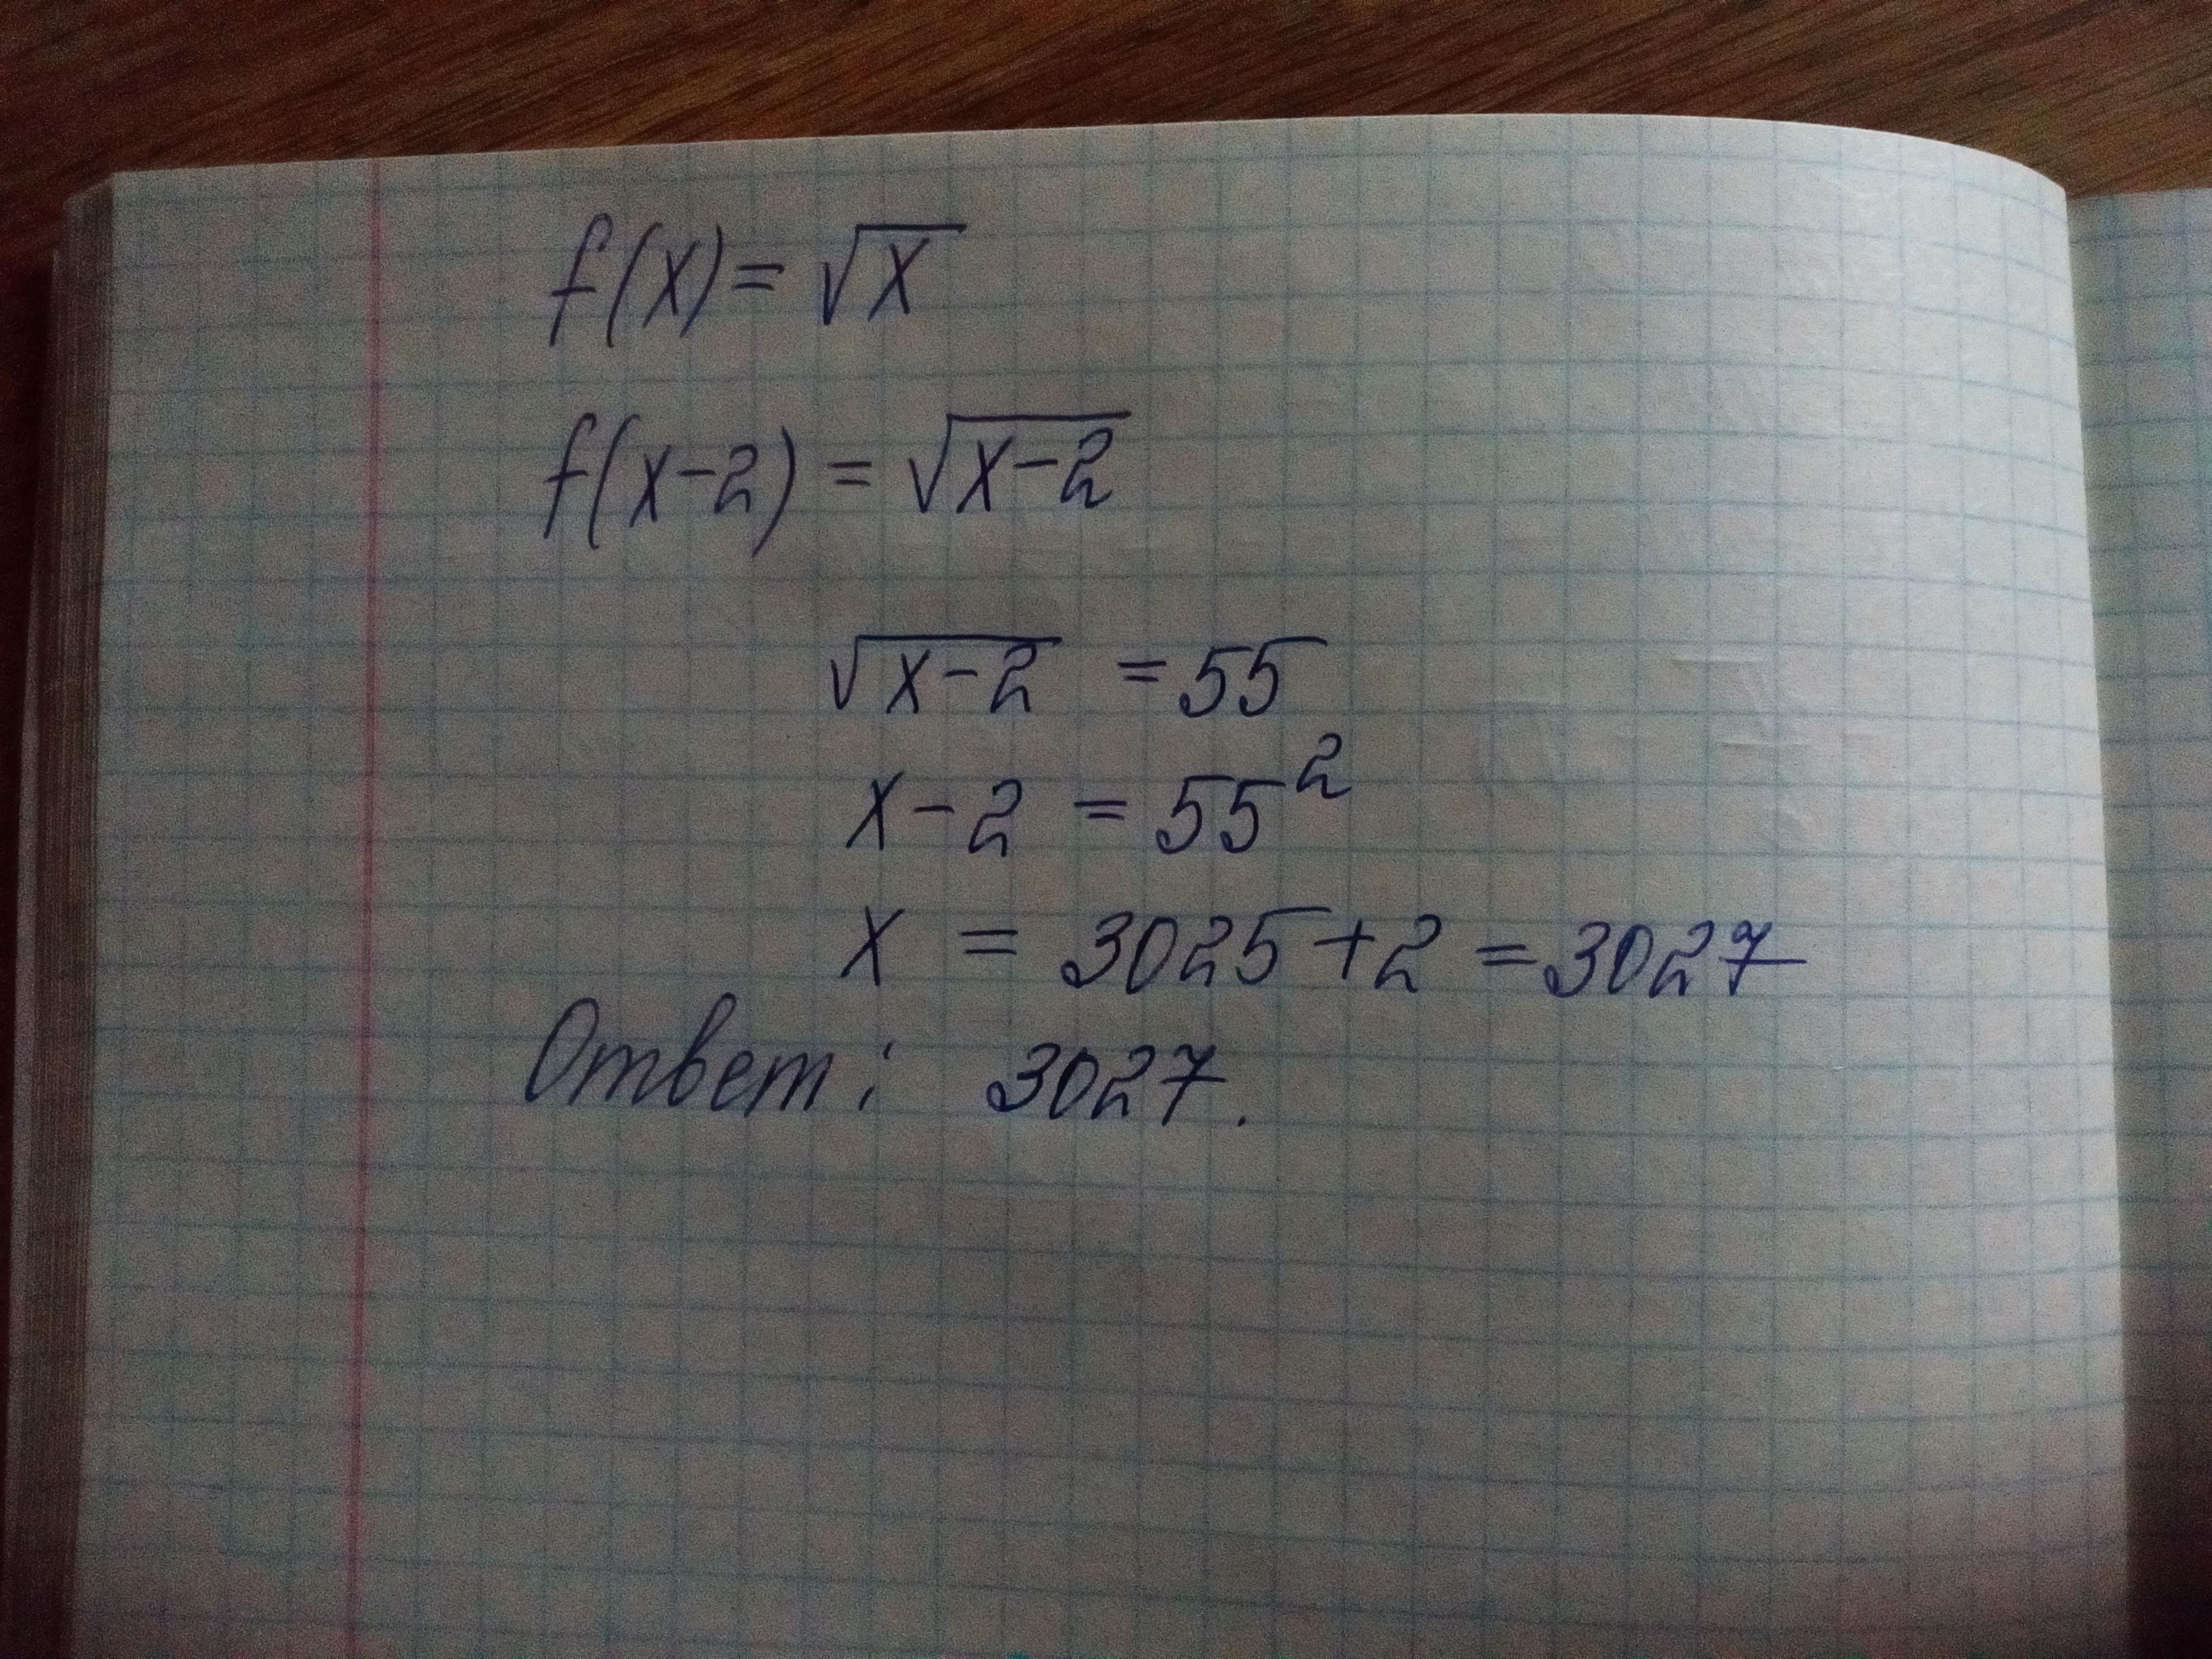 f(x) = √x
f(x-2) = √x-2
√x-2 = 55
x-2 = 55²
x = 3025+2 = 3027
Ответ: 3027.